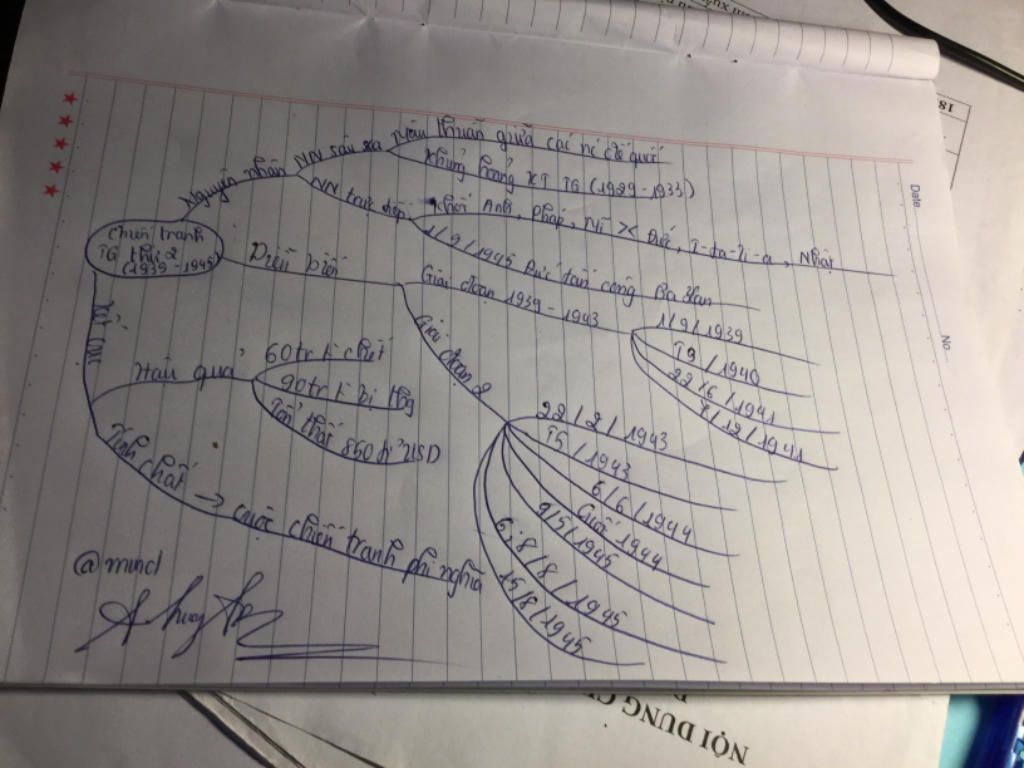 Chiến tranh
TG thứ 2
(1939-1945)
Nguyên nhân
NN sâu xa
Mâu thuẫn giữa các nc đế quốc
Khủng hoảng KT TG (1929-1933)
NN trực tiếp
Khối Anh, Pháp, Mĩ >< Đức, I-ta-li-a, Nhật
1/9/1945 Đức tấn công Ba Lan
Diễn biến
Giai đoạn 1939-1943
1/9/1939
T9/1940
22/6/1941
7/12/1941
Giai đoạn 2
22/2/1943
T5/1943
6/6/1944
Cuối 1944
9/5/1945
6,8/8/1945
15/8/1945
Kết cục
Hậu quả
60tr k chết
90tr k bị thg
Tổn thất 850 tỉ USD
Tính chất → cuộc chiến tranh phi nghĩa
@mind
Date
No
18.
NỘI DUNG